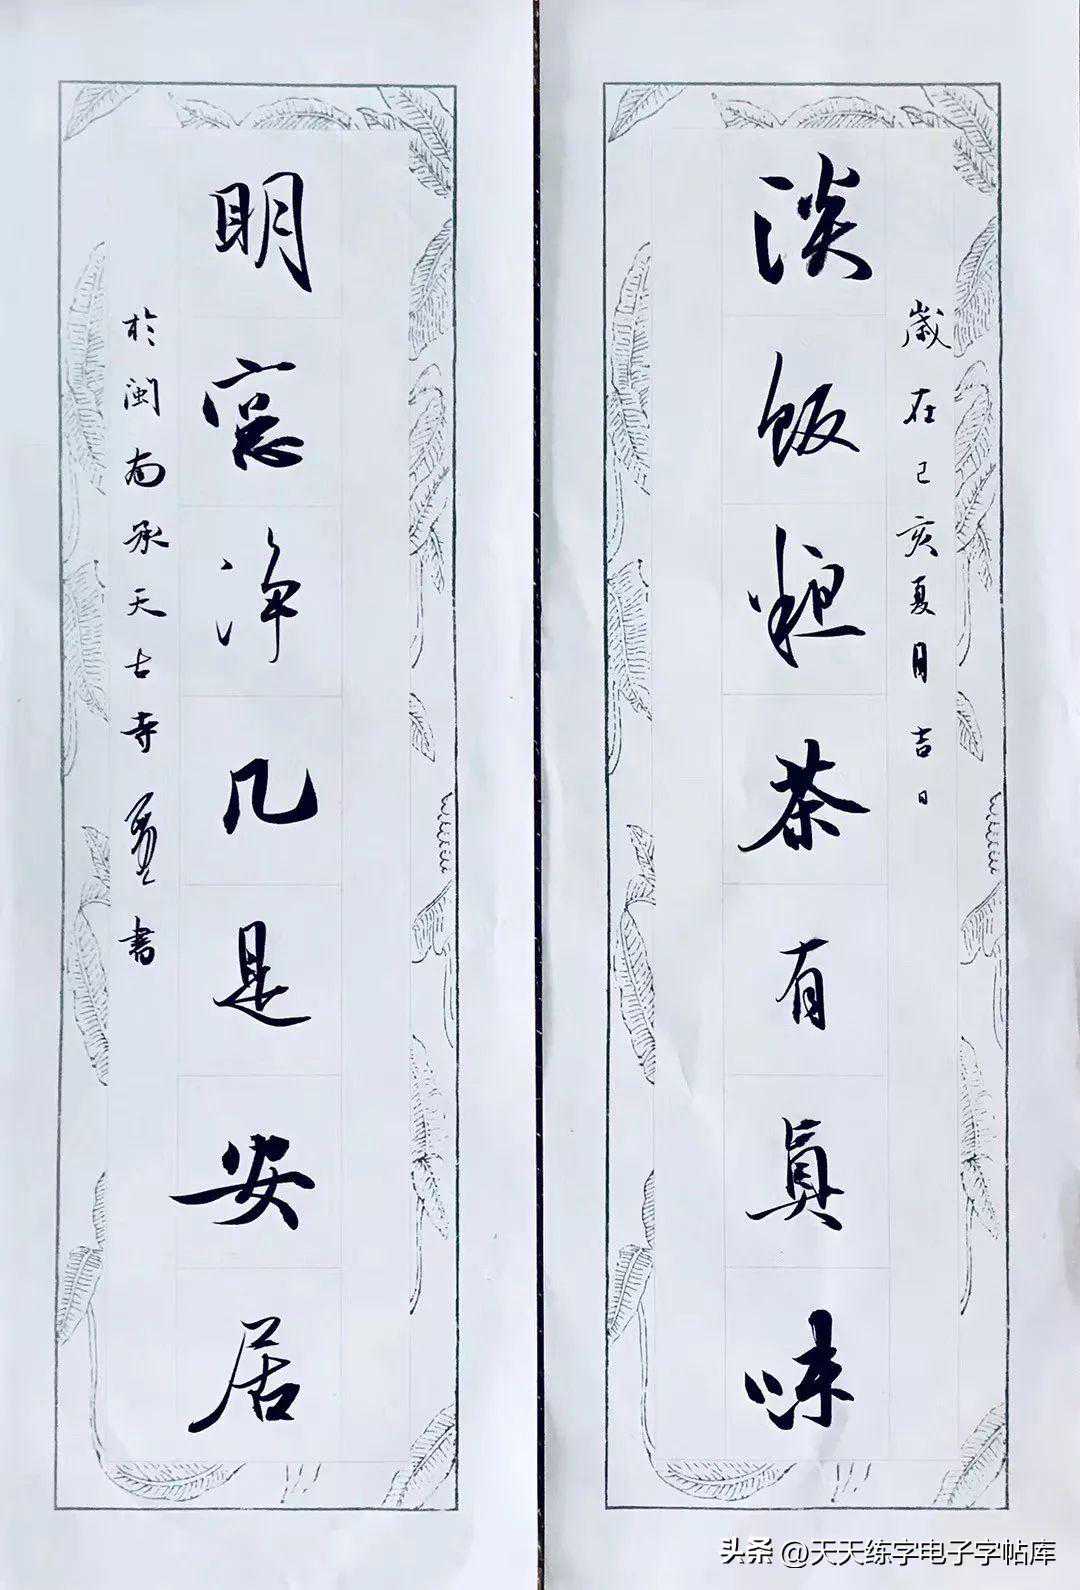 歲在己亥夏月吉日
淡飯粗茶有眞味
明窓淨几是安居
於閩南承天古寺書
头条 @天天练字电子字帖库